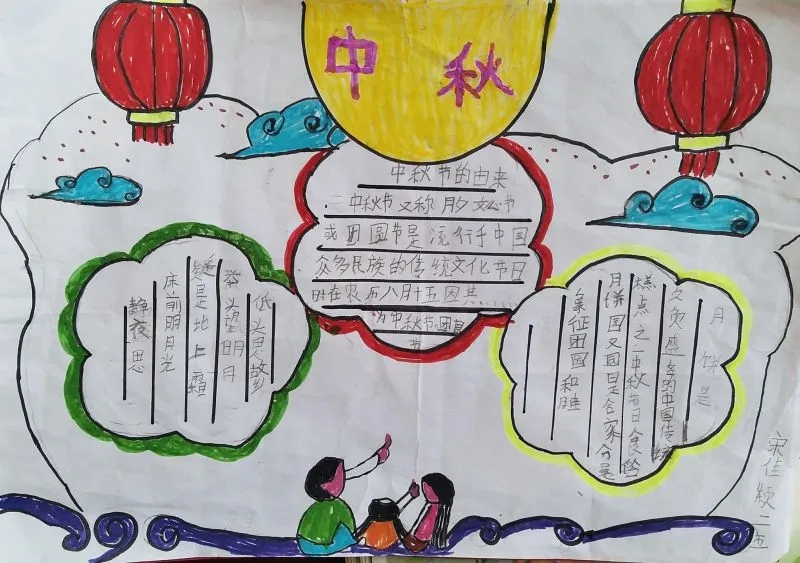 中秋
中秋节的由来
中秋节又称月夕
或团圆节是流行于中国
众多民族的传统文化节日
时在农历八月十五因其
为中秋节团员
节
静夜思
床前明月光
疑是地上霜
举头望明月
低头思故乡
月饼是
久负盛名的中国传统
糕点之一中秋节日食俗
月饼圆又圆是合家分是
象征团圆和睦
宋佳颍二五